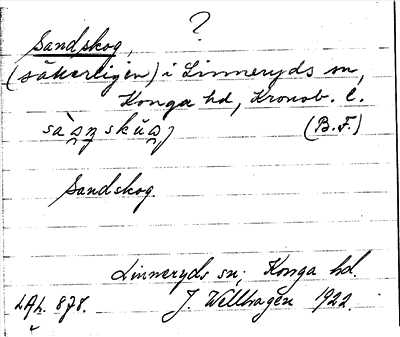 ?
Sandskog,
(säkerligen) i Linneryds sn,
Konga hd, Kronob. l.
(B.F.)
Sandskog.
Linneryds sn; Konga hd.
LAh. 878. J. Wellhagen 1922.